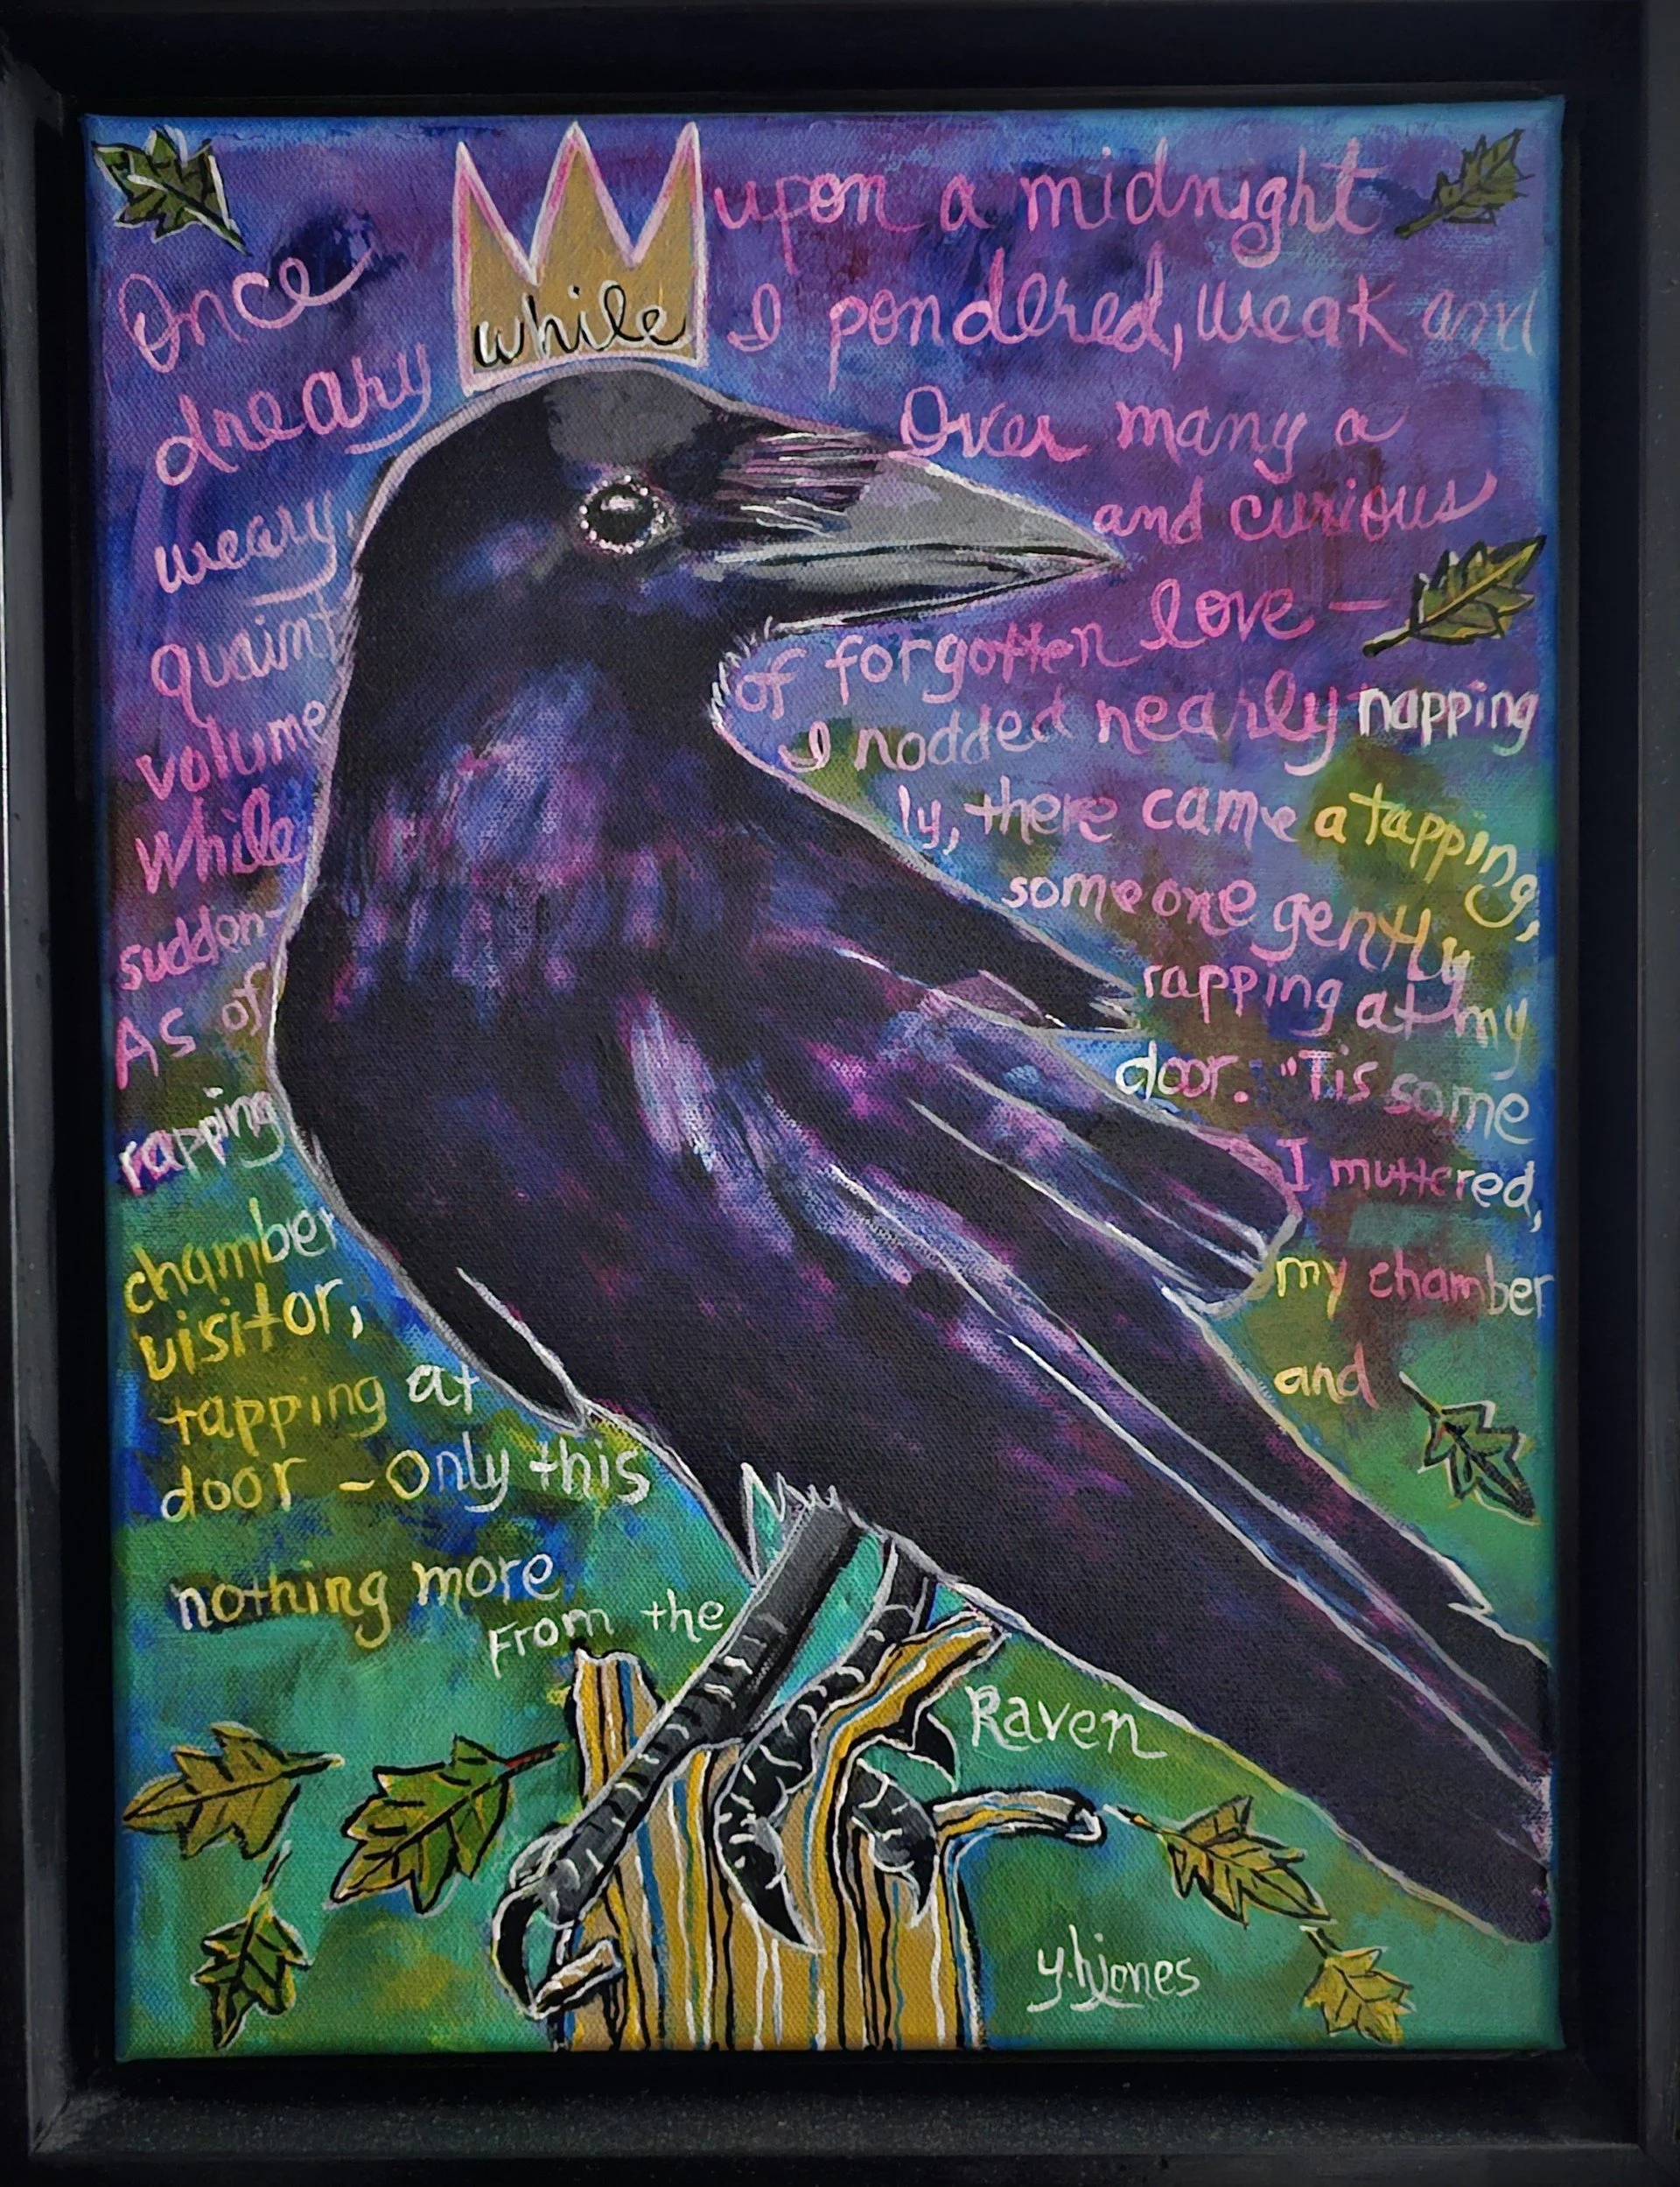 Once upon a midnight
dreary while I pondered, weak and
weary, Over many a
quaint and curious
volume of forgotten love —
While I nodded nearly napping
sudden- ly, there came a tapping,
As of someone gently
rapping rapping at my
chamber door. "Tis some
visitor, I muttered,
tapping at my chamber
door - only this and
nothing more
From the
Raven
y.hjones